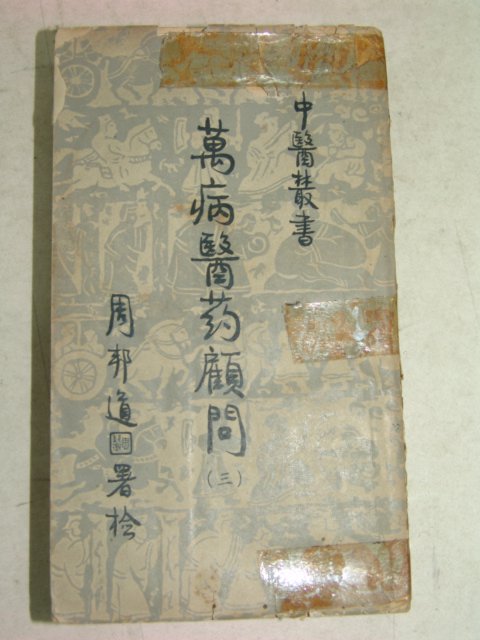 中醫叢書
萬病醫药顧問
(三)
周邦道署检